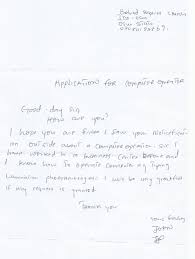 Behind
IDO-OSUN
Osun State
APPLICATION FOR COMPUTER OPERATOR
Good day Sir,
How are you?
I hope you are fine. I saw your
outside about a computer operator. Sir I
have worked in a business center before and
I know how to operate computer eg typing
Lamination photocopying etc. I will be very grateful
if my request is granted
Thank you
Yours
JOHN